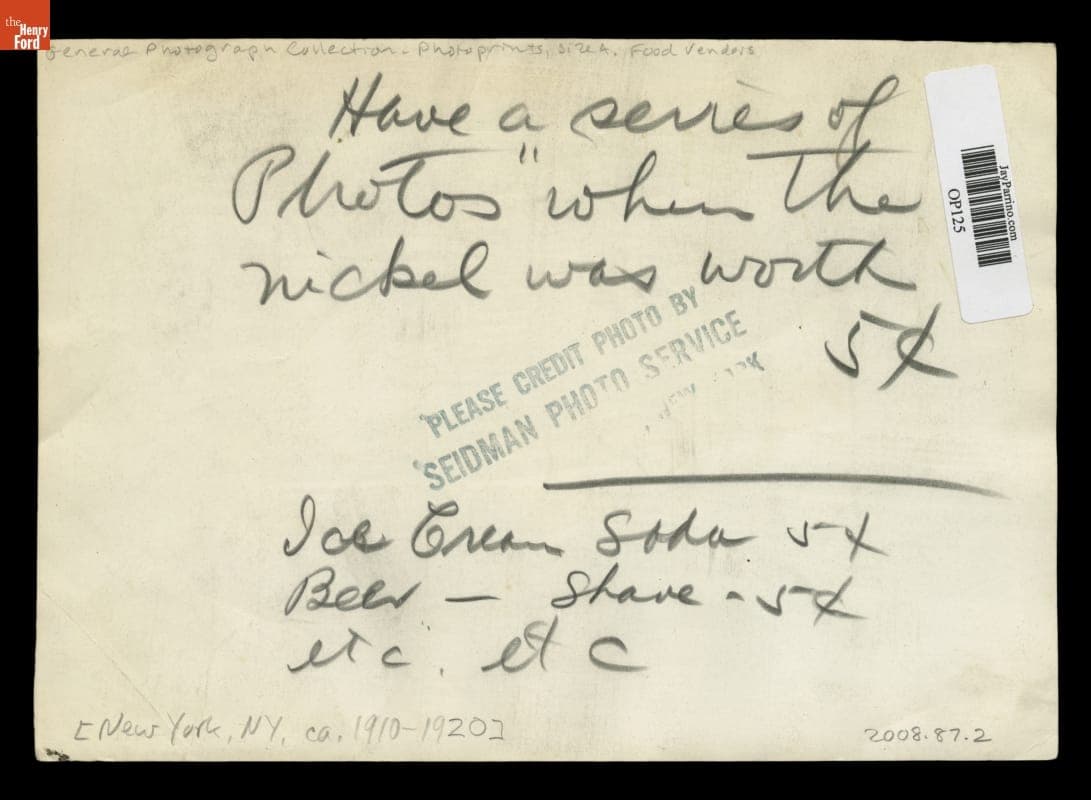 the Henry Ford
General Photograph Collection - Photoprints, size A. Food Vendors
Have a series of
Photos "when the
nickel was worth
5¢
JayParrino.com
OP125
PLEASE CREDIT PHOTO BY
SEIDMAN PHOTO SERVICE
NEW YORK
Ice Cream Soda 5¢
Beer — Shave - 5¢
etc. etc
[New York, NY, ca. 1910-1920]
2008.87.2